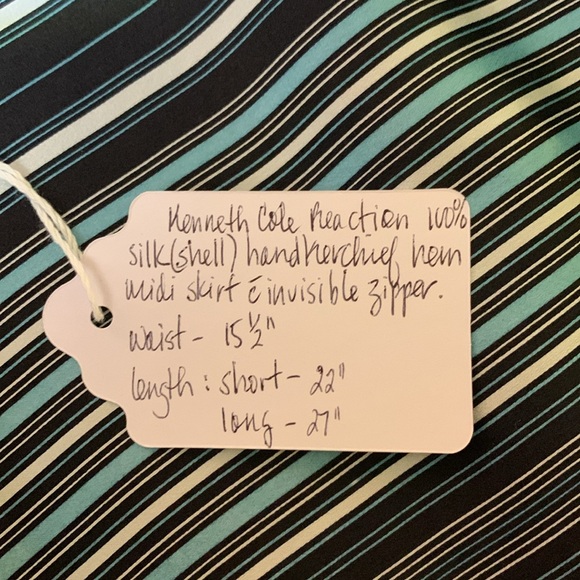 Kenneth Cole Reaction 100%
silk(shell) handkerchief hem
midi skirt c̄ invisible zipper.
waist - 15 ½"
length : short - 22"
long - 27"